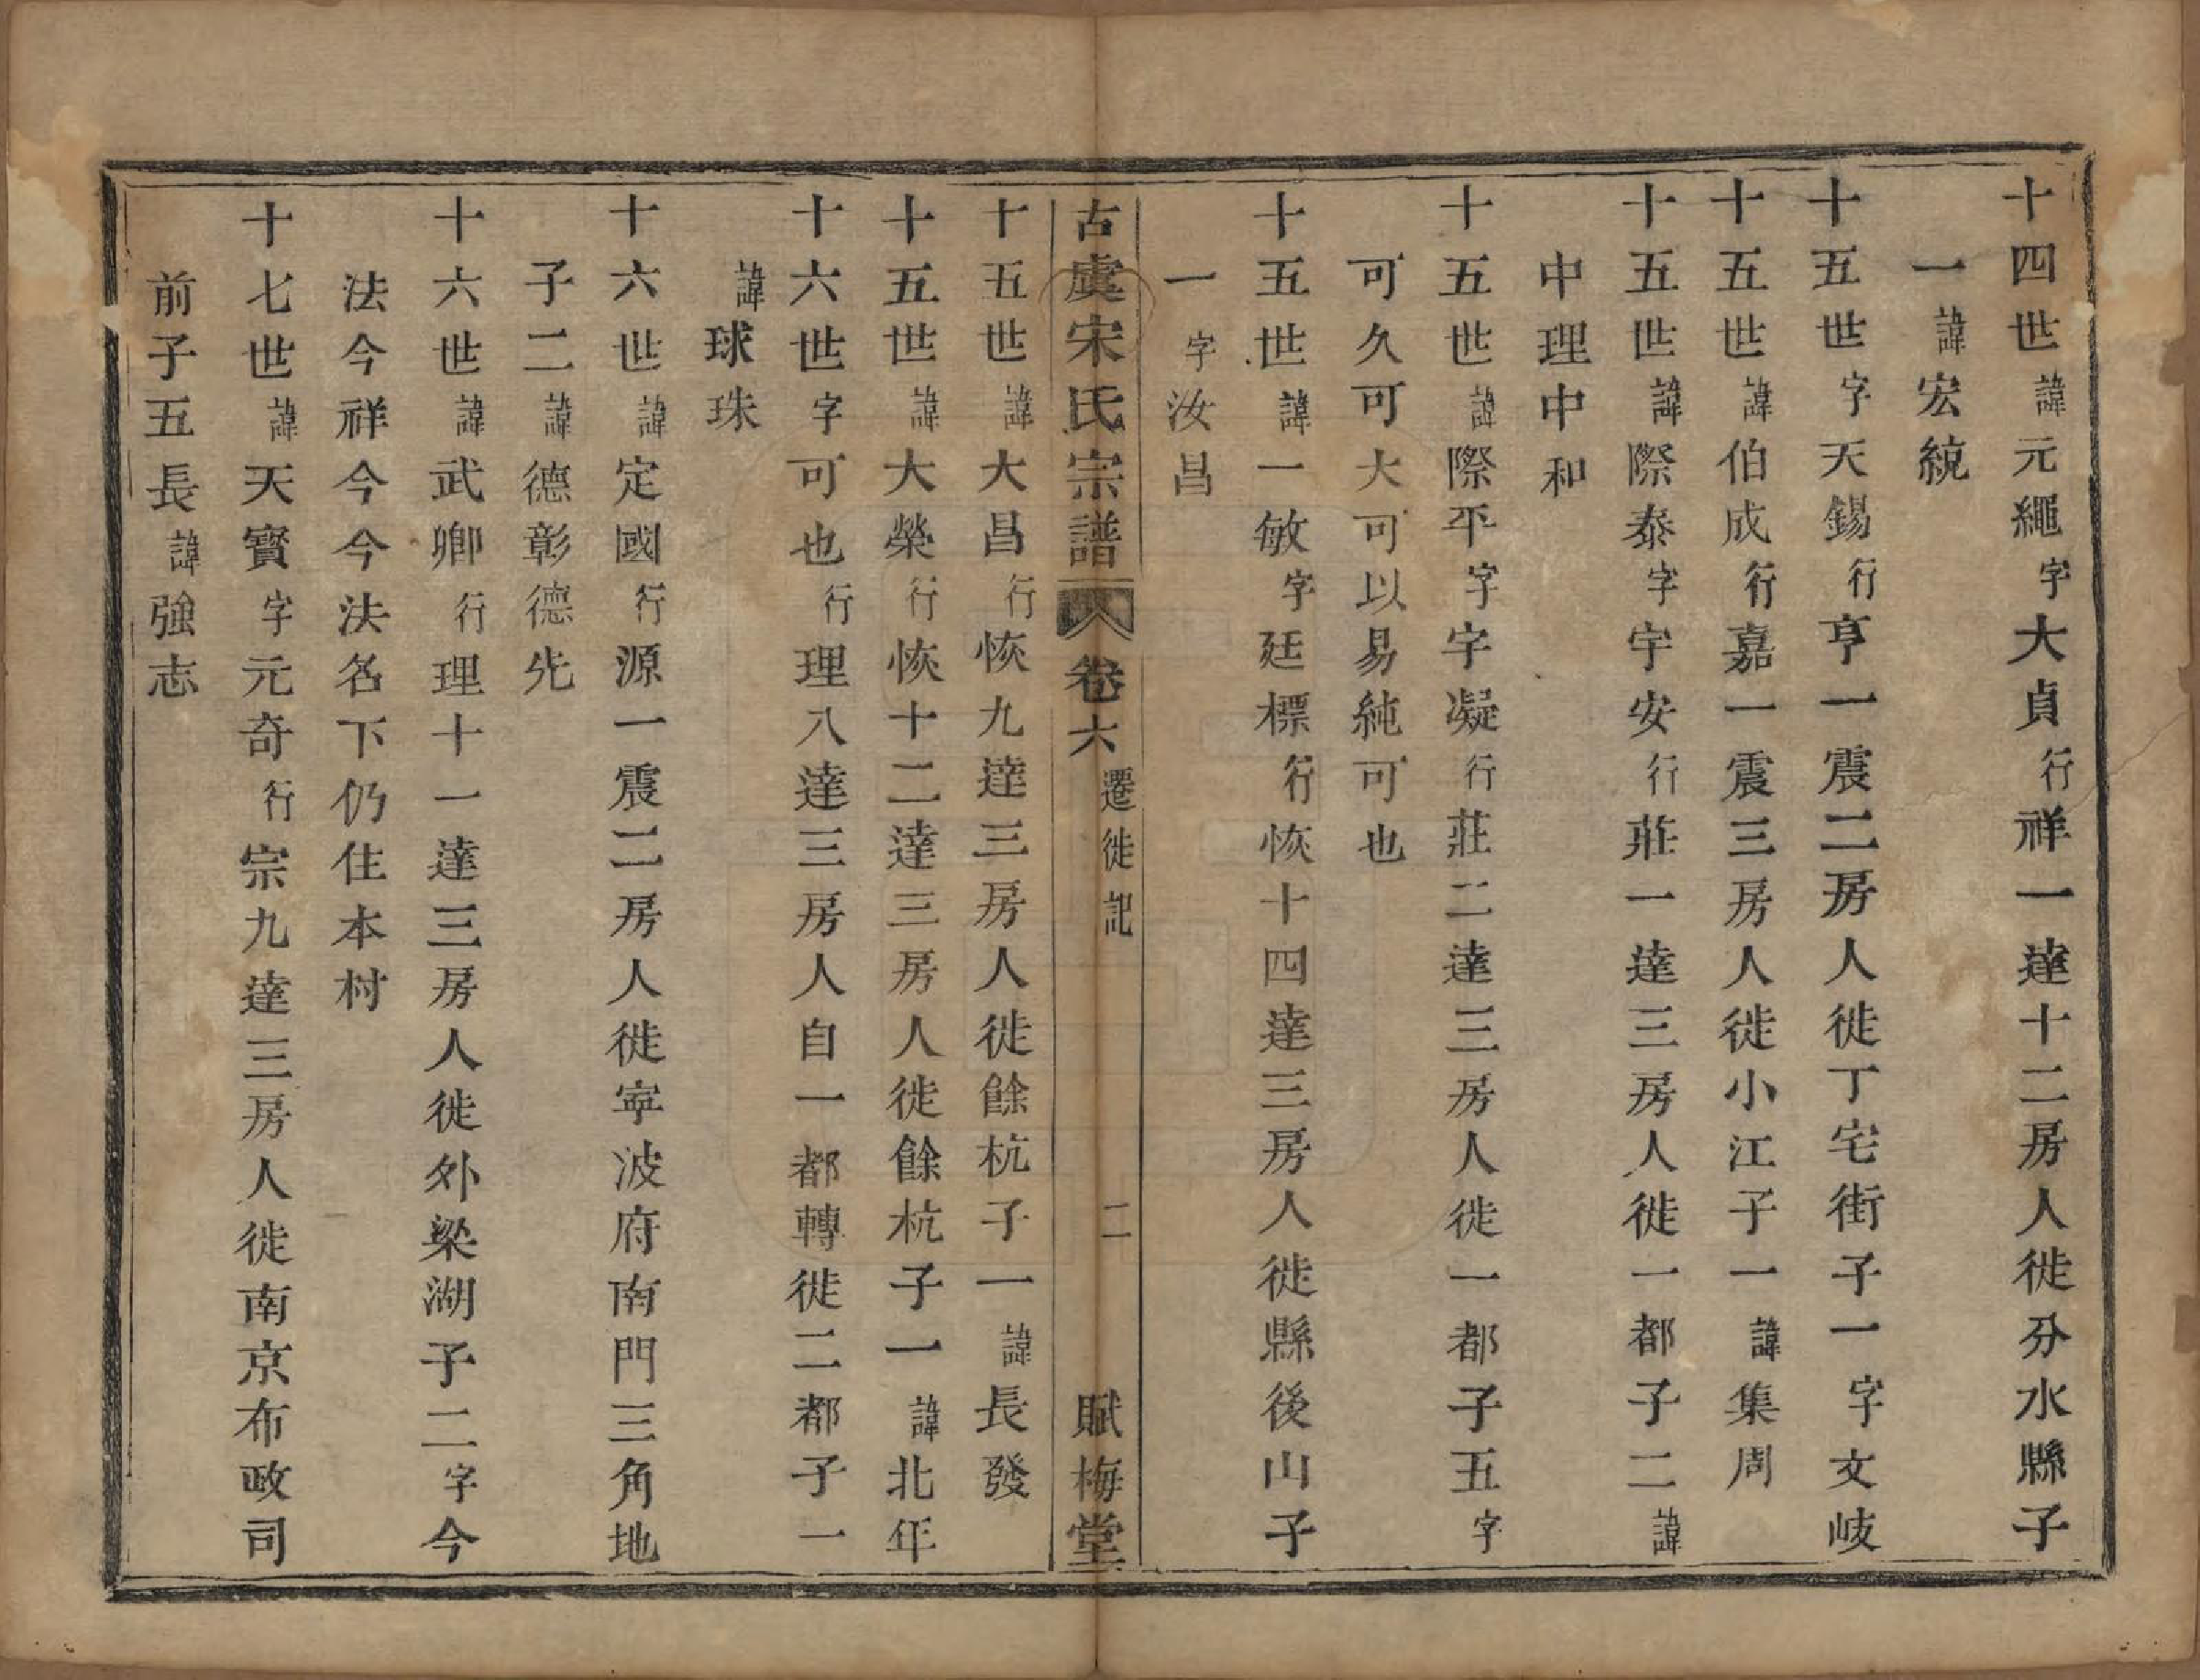 十四世諱元繩字大貞行祥一達十二房人徙分水縣子
一諱宏統
十五世字天錫行亨一震二房人徙丁宅街子一字文岐
十五世諱伯成行嘉一震三房人徙小江子一諱集周
十五世諱際泰字宇安行莊一達三房人徙一都子二諱
中理中和
十五世諱際平字字凝行莊二達三房人徙一都子五字
可久可大可以易純可也
十五世諱一敏字廷標行恢十四達三房人徙縣後山子
一字汝昌
古虞宋氏宗譜 卷六 遷徙記 二 賦梅堂
十五世諱大昌行恢九達三房人徙餘杭子一諱長發
十五世諱大榮行恢十二達三房人徙餘杭子一諱北年
十六世字可也行理八達三房人自一都轉徙二都子一
諱球珠
十六世諱定國行源一震二房人徙寧波府南門三角地
子二諱德彰德先
十六世諱武卿行理十一達三房人徙外梁湖子二字今
法今祥今今法名下仍住本村
十七世諱天寳字元奇行宗九達三房人徙南京布政司
前子五長諱強志